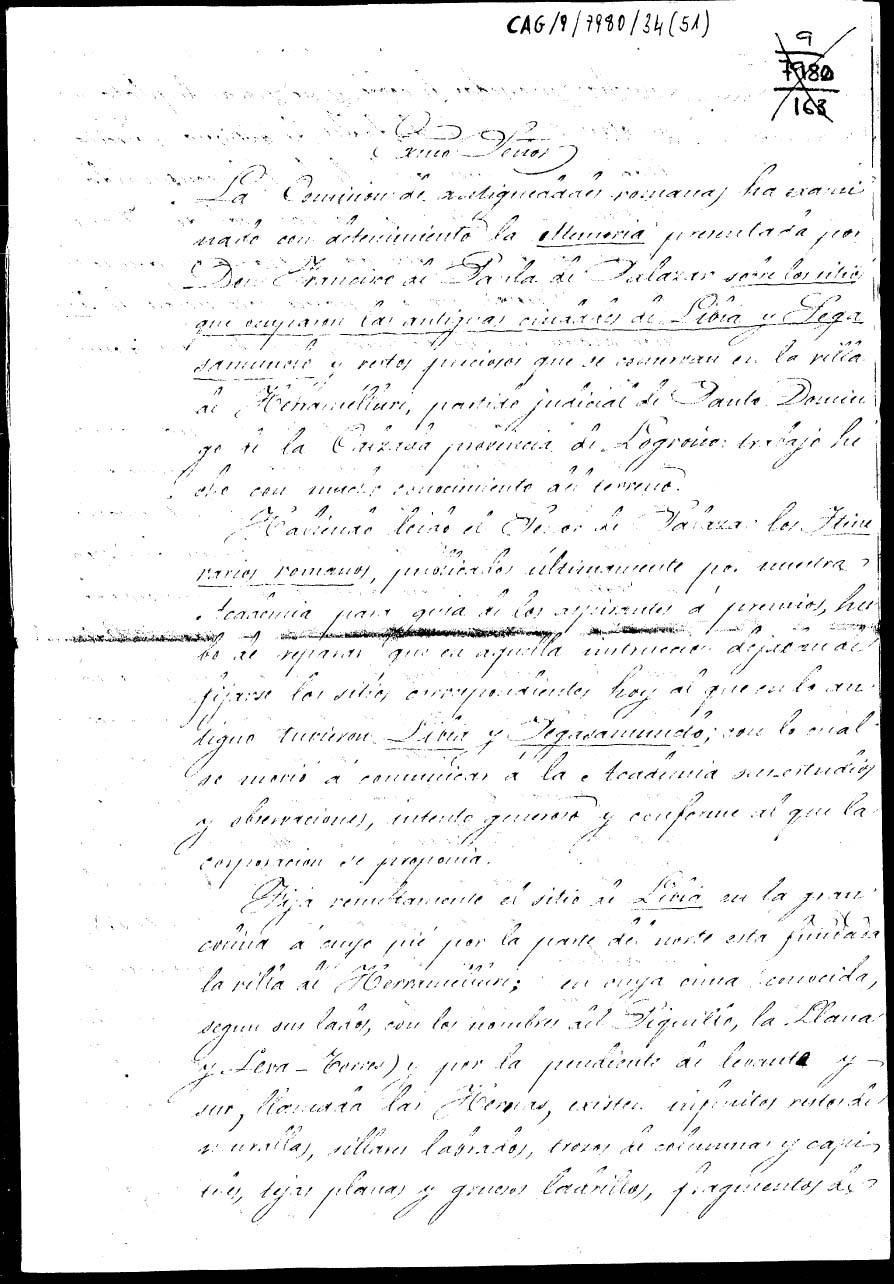 CAG/9/7980/34(51)
9
7980
163
Exmo Señor
La Comision de antiguedades romanas ha exami
nado con detenimiento la Memoria presentada por
Don Francisco de Paula de Salazar sobre los sitios
que ocuparon las antiguas ciudades de Libia y Sega
samunclo y restos preciosos que se conservan en la villa
de Herramélluri, partido judicial de Santo Domin
go de la Calzada provincia de Logroño: trabajo he
cho con mucho conocimiento del terreno.
Habiendo leido el Señor de Salazar los Itine
rarios romanos, publicados últimamente por nuestra
Academia para guia de los aspirantes á premios, hu
bo de reparar que en aquella instruccion dejaban de
fijarse los sitios correspondientes hoy al que en lo an
tiguo tuvieron Libia y Segasamundo; con lo cual
se movió á comunicar á la Academia sus estudios
y observaciones, intento generoso y conforme al que la
corporacion se proponia.
Fija resueltamente el sitio de Libia en la gran
colina á cuyo pié por la parte del norte está fundada
la villa de Herramélluri; en cuya cima (conocida,
segun sus lados, con los nombres del Piquillo, la Llana
y Leva-Torres) y por la pendiente de levante y
sur, llamada las Hernas, existen infinitos restos de
murallas, sillares labrados, trozos de columnas y capi
teles, tejas planas y gruesos ladrillos, fragmentos de